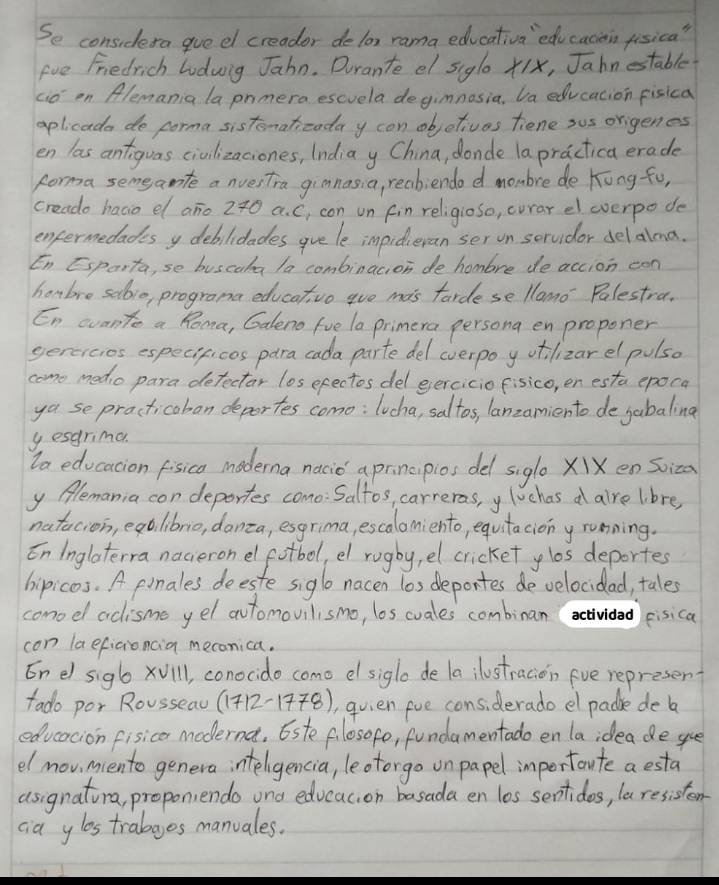 Se considera que el creador de la rama educativa "educación física"
fue Friedrich Ludwig Jahn. Durante el siglo XIX, Jahn estable-
ció en Alemania la primera escuela de gimnasia. La educación física
aplicada de forma sistematizada y con objetivos tiene sus origenes
en las antiguas civilizaciones, India y China, donde la práctica era de
forma semejante a nuestra gimnasia, recibiendo el nombre de Kung-fu,
creado hacia el año 270 a.C, con un fin religioso, curar el cuerpo de
enfermedades y debilidades que le impidieran ser un servidor del alma.
En Esparta, se buscaba la combinación de hombre de accion con
hombre sabio, programa educativo que más tarde se llamó Palestra.
En cuanto a Roma, Galeno fue la primera persona en proponer
gercicios especificos para cada parte del cuerpo y utilizar el pulso
como medio para detectar los efectos del ejercicio físico, en esta epoca
ya se practicaban deportes como: lucha, saltos, lanzamiento de jabalina
y esgrima.
La educacion física moderna nació a principios del siglo XIX en Suiza
y Alemania con deportes como: Saltos, carreras, y luchas al aire libre,
natación, equilibrio, danza, esgrima, escalamiento, equitación y running.
En Inglaterra nacieron el futbol, el rugby, el cricket y los deportes
hipicos. A finales de este siglo nacen los deportes de velocidad, tales
como el ciclismo y el automovilismo, los cuales combinan actividad física
con la eficiencia mecanica.
En el siglo XVIII, conocido como el siglo de la ilustración fue represen-
tado por Rousseau (1712-1778), quien fue considerado el padre de la
educación física moderna. Este filosofo, fundamentado en la idea de que
el movimiento genera inteligencia, le otorgo un papel importante a esta
asignatura, proponiendo una educación basada en los sentidos, la resisten-
cia y los trabajos manuales.